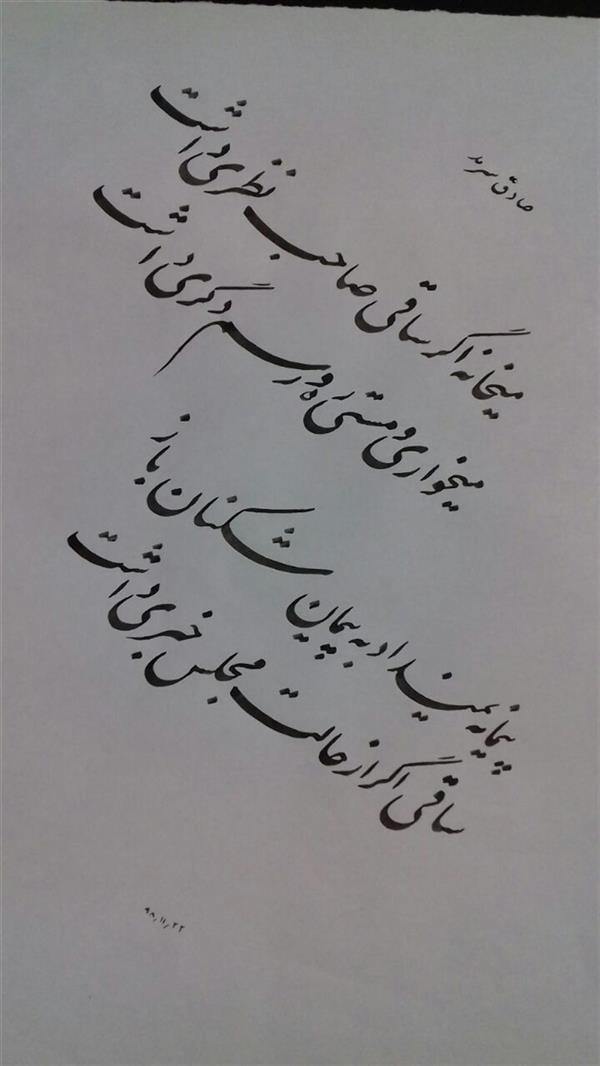 صادق سرمد
میخانه اگر ساقی صاحب نظری داشت
میخواری و مستی ره و رسم دگری داشت
پیمانه نمیداد به پیمان شکنان باز
ساقی اگر از حالت مجلس خبری داشت
۹۸٫۱۱٫۲۲